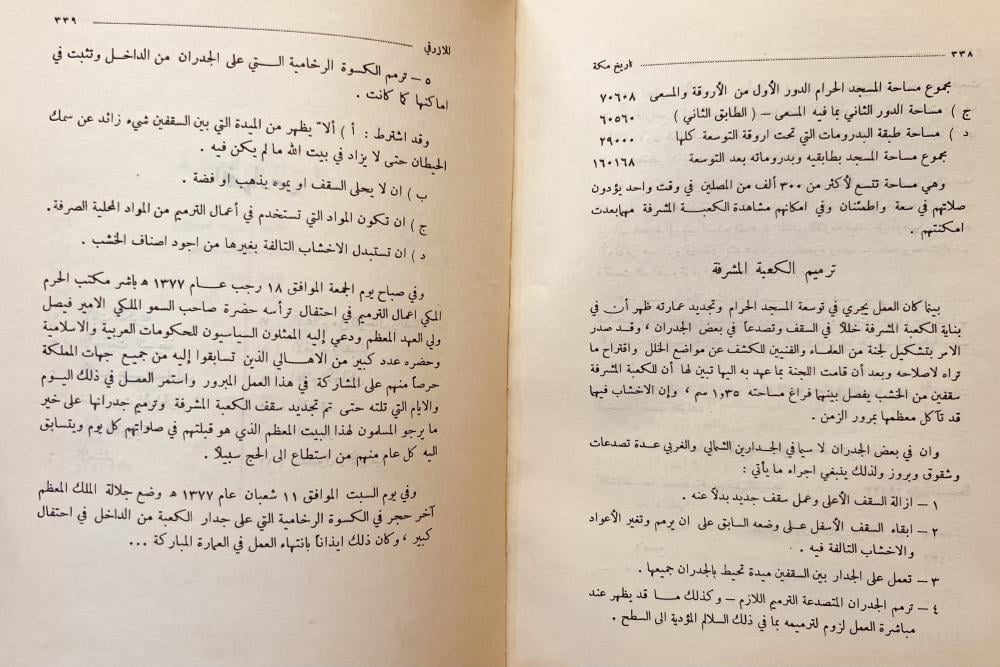 ٣٣٨ تاريخ مكة
مجموع مساحة المسجد الحرام الدور الأول من الأروقة والمسعى ٧٠٦٠٨
ج ) مساحة الدور الثاني بما فيه المسعى – ( الطابق الثاني ) ٦٠٥٦٠
د ) مساحة طبقة البدرومات التي تحت اروقة التوسعة كلها ٢٩٠٠٠
مجموع مساحة المسجد بطابقيه وبدروماته بعد التوسعة ١٦٠١٦٨
وهي مساحة تتسع لأكثر من ٣٠٠ ألف من المصلين في وقت واحد يؤدون
صلاتهم في سعة واطمئنان وفي امكانهم مشاهدة الكعبة المشرفة مهما بعدت
امكنتهم .
ترميم الكعبة المشرفة
بينما كان العمل يجري في توسعة المسجد الحرام وتجديد عمارته ظهر أن في
بناية الكعبة المشرفة خللاً في السقف وتصدعاً في بعض الجدران ، وقد صدر
الامر بتشكيل لجنة من العلماء والفنيين للكشف عن مواضع الخلل واقتراح ما
تراه لاصلاحه وبعد أن قامت اللجنة بما عهد به اليها تبين لها أن للكعبة المشرفة
سقفين من الخشب يفصل بينهما فراغ مساحته ١,٣٥ سم ، وإن الاخشاب فيها
قد تآكل معظمها بمرور الزمن .
وان في بعض الجدران لا سيما في الجدارين الشمالي والغربي عدة تصدعات
وشقوق وبروز ولذلك ينبغي اجراء ما يأتي :
١ – ازالة السقف الأعلى وعمل سقف جديد بدلاً عنه .
٢ – ابقاء السقف الأسفل على وضعه السابق على ان يرمم وتغير الأعواد
والاخشاب التالفة فيه .
٣ – تعمل على الجدار بين السقفين ميدة تحيط بالجدران جميعها .
٤ – ترمم الجدران المتصدعة الترميم اللازم – وكذلك ما قد يظهر عند
مباشرة العمل لزوم لترميمه بما في ذلك السلالم المؤدية الى السطح .
للازرقي ٣٣٩
٥ – ترمم الكسوة الرخامية التي على الجدران من الداخل وتثبت في
اماكنها كما كانت .
وقد اشترط : أ ) ألا ّ يظهر من الميدة التي بين السقفين شيء زائد عن سمك
الحيطان حتى لا يزاد في بيت الله ما لم يكن فيه .
ب ) ان لا يحلى السقف او يموه بذهب او فضة .
ج ) ان تكون المواد التي تستخدم في أعمال الترميم من المواد المحلية الصرفة .
د ) ان تستبدل الاخشاب التالفة بغيرها من اجود اصناف الخشب .
وفي صباح يوم الجمعة الموافق ١٨ رجب عام ١٣٧٧ ه باشر مكتب الحرم
المكي اعمال الترميم في احتفال ترأسه حضرة صاحب السمو الملكي الامير فيصل
ولي العهد المعظم ودعي إليه الممثلون السياسيون للحكومات العربية والاسلامية
وحضره عدد كبير من الاهالي الذين تسابقوا إليه من جميع جهات المملكة
حرصاً منهم على المشاركة في هذا العمل المبرور واستمر العمل في ذلك اليوم
والايام التي تلته حتى تم تجديد سقف الكعبة المشرفة وترميم جدرانها على خير
ما يرجو المسلمون لهذا البيت المعظم الذي هو قبلتهم في صلواتهم كل يوم ويتسابق
اليه كل عام منهم من استطاع الى الحج سبيلاً .
وفي يوم السبت الموافق ١١ شعبان عام ١٣٧٧ ه وضع جلالة الملك المعظم
آخر حجر في الكسوة الرخامية التي على جدار الكعبة من الداخل في احتفال
كبير ، وكان ذلك ايذاناً بانتهاء العمل في العمارة المباركة ...